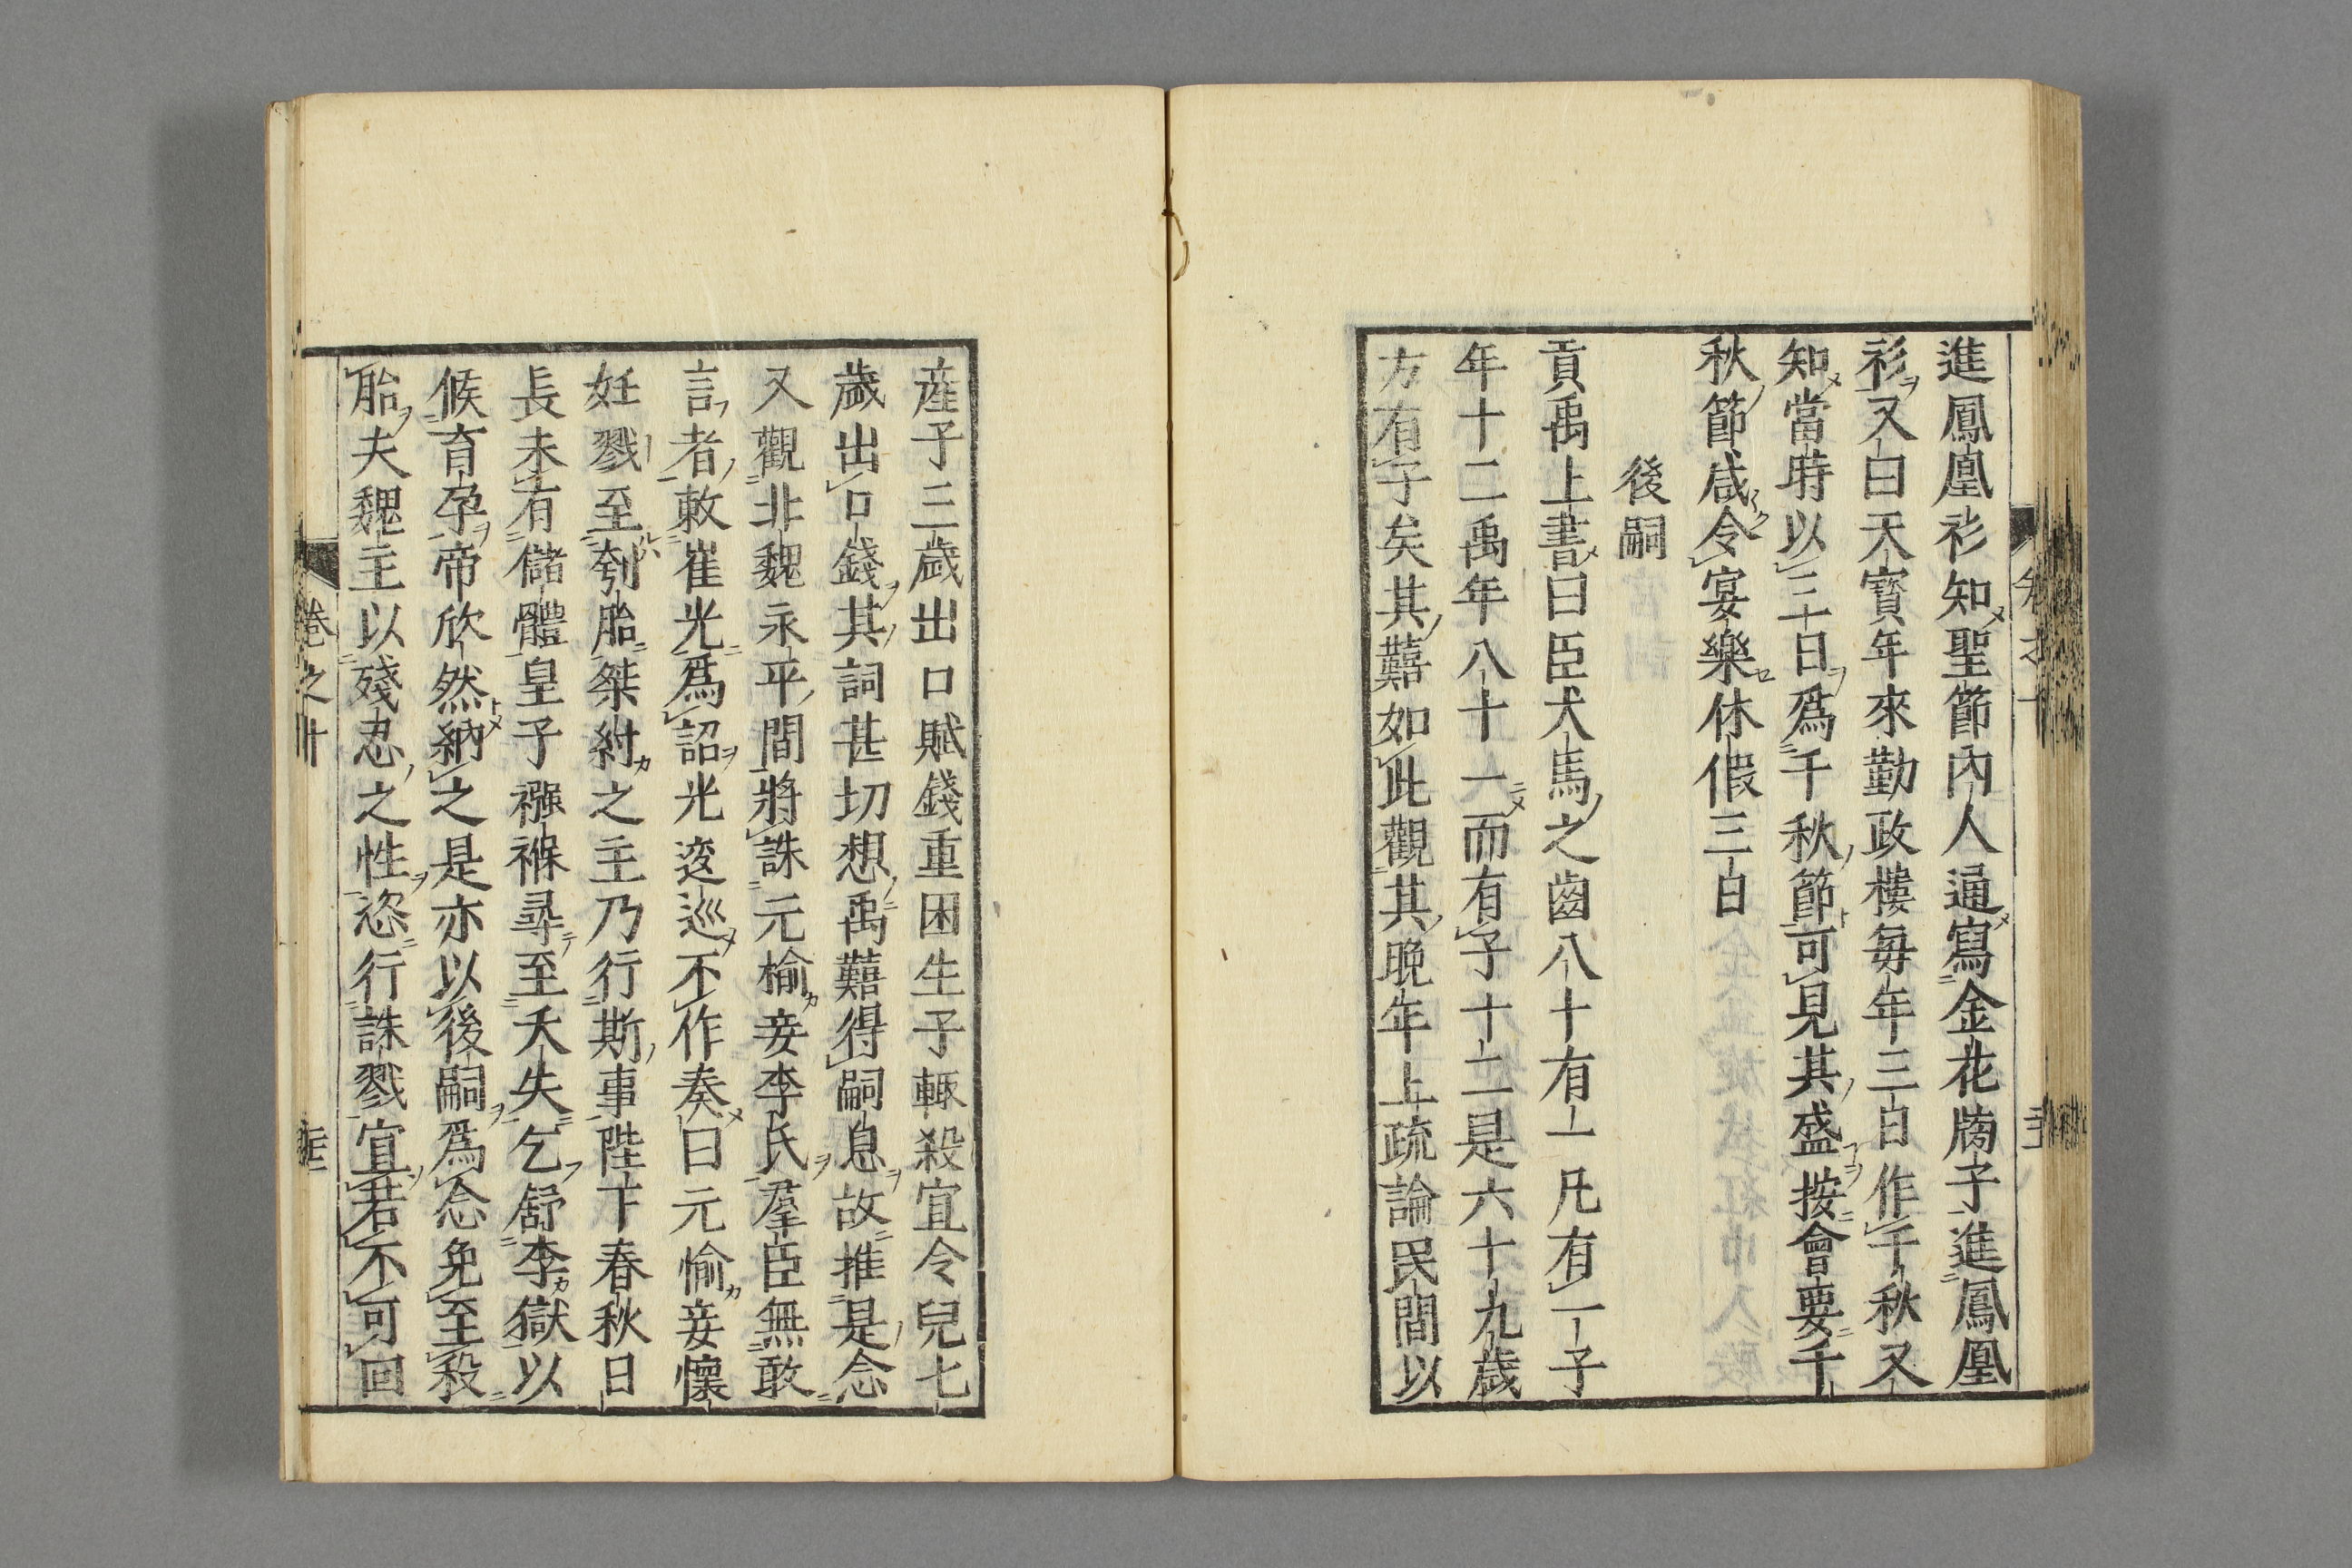 進鳳凰衫知聖節內人通寫金花牓子進鳳凰
衫又曰天寶年來勤政樓毎年三日作千秋又
知當時以三十日爲千秋節可見其盛按會要千
秋節咸令宴樂休假三日
後嗣
貢禹上書曰臣犬馬之齒八十有一凡有一子
年十二禹年八十一而有子十二是六十九歳
方有子矣其囏如此觀其晚年上疏論民間以
產子三歳出口賦錢重困生子輒殺宜令兒七
歳出口錢其詞甚切想禹囏得嗣息故推是念
又觀非魏永平間將誅元楡妾李氏羣臣無敢
言者敕崔光爲詔光逡巡不作奏曰元愉妾懷
妊戮至刳胎桀紂之主乃行斯事陛下春秋日
長未有儲體皇子襁褓尋至夭失乞舒李獄以
候育孕帝欣然納之是亦以後嗣爲念免至殺
胎夫魏主以殘忍之性恣行誅戮宜若不可回
卷之十